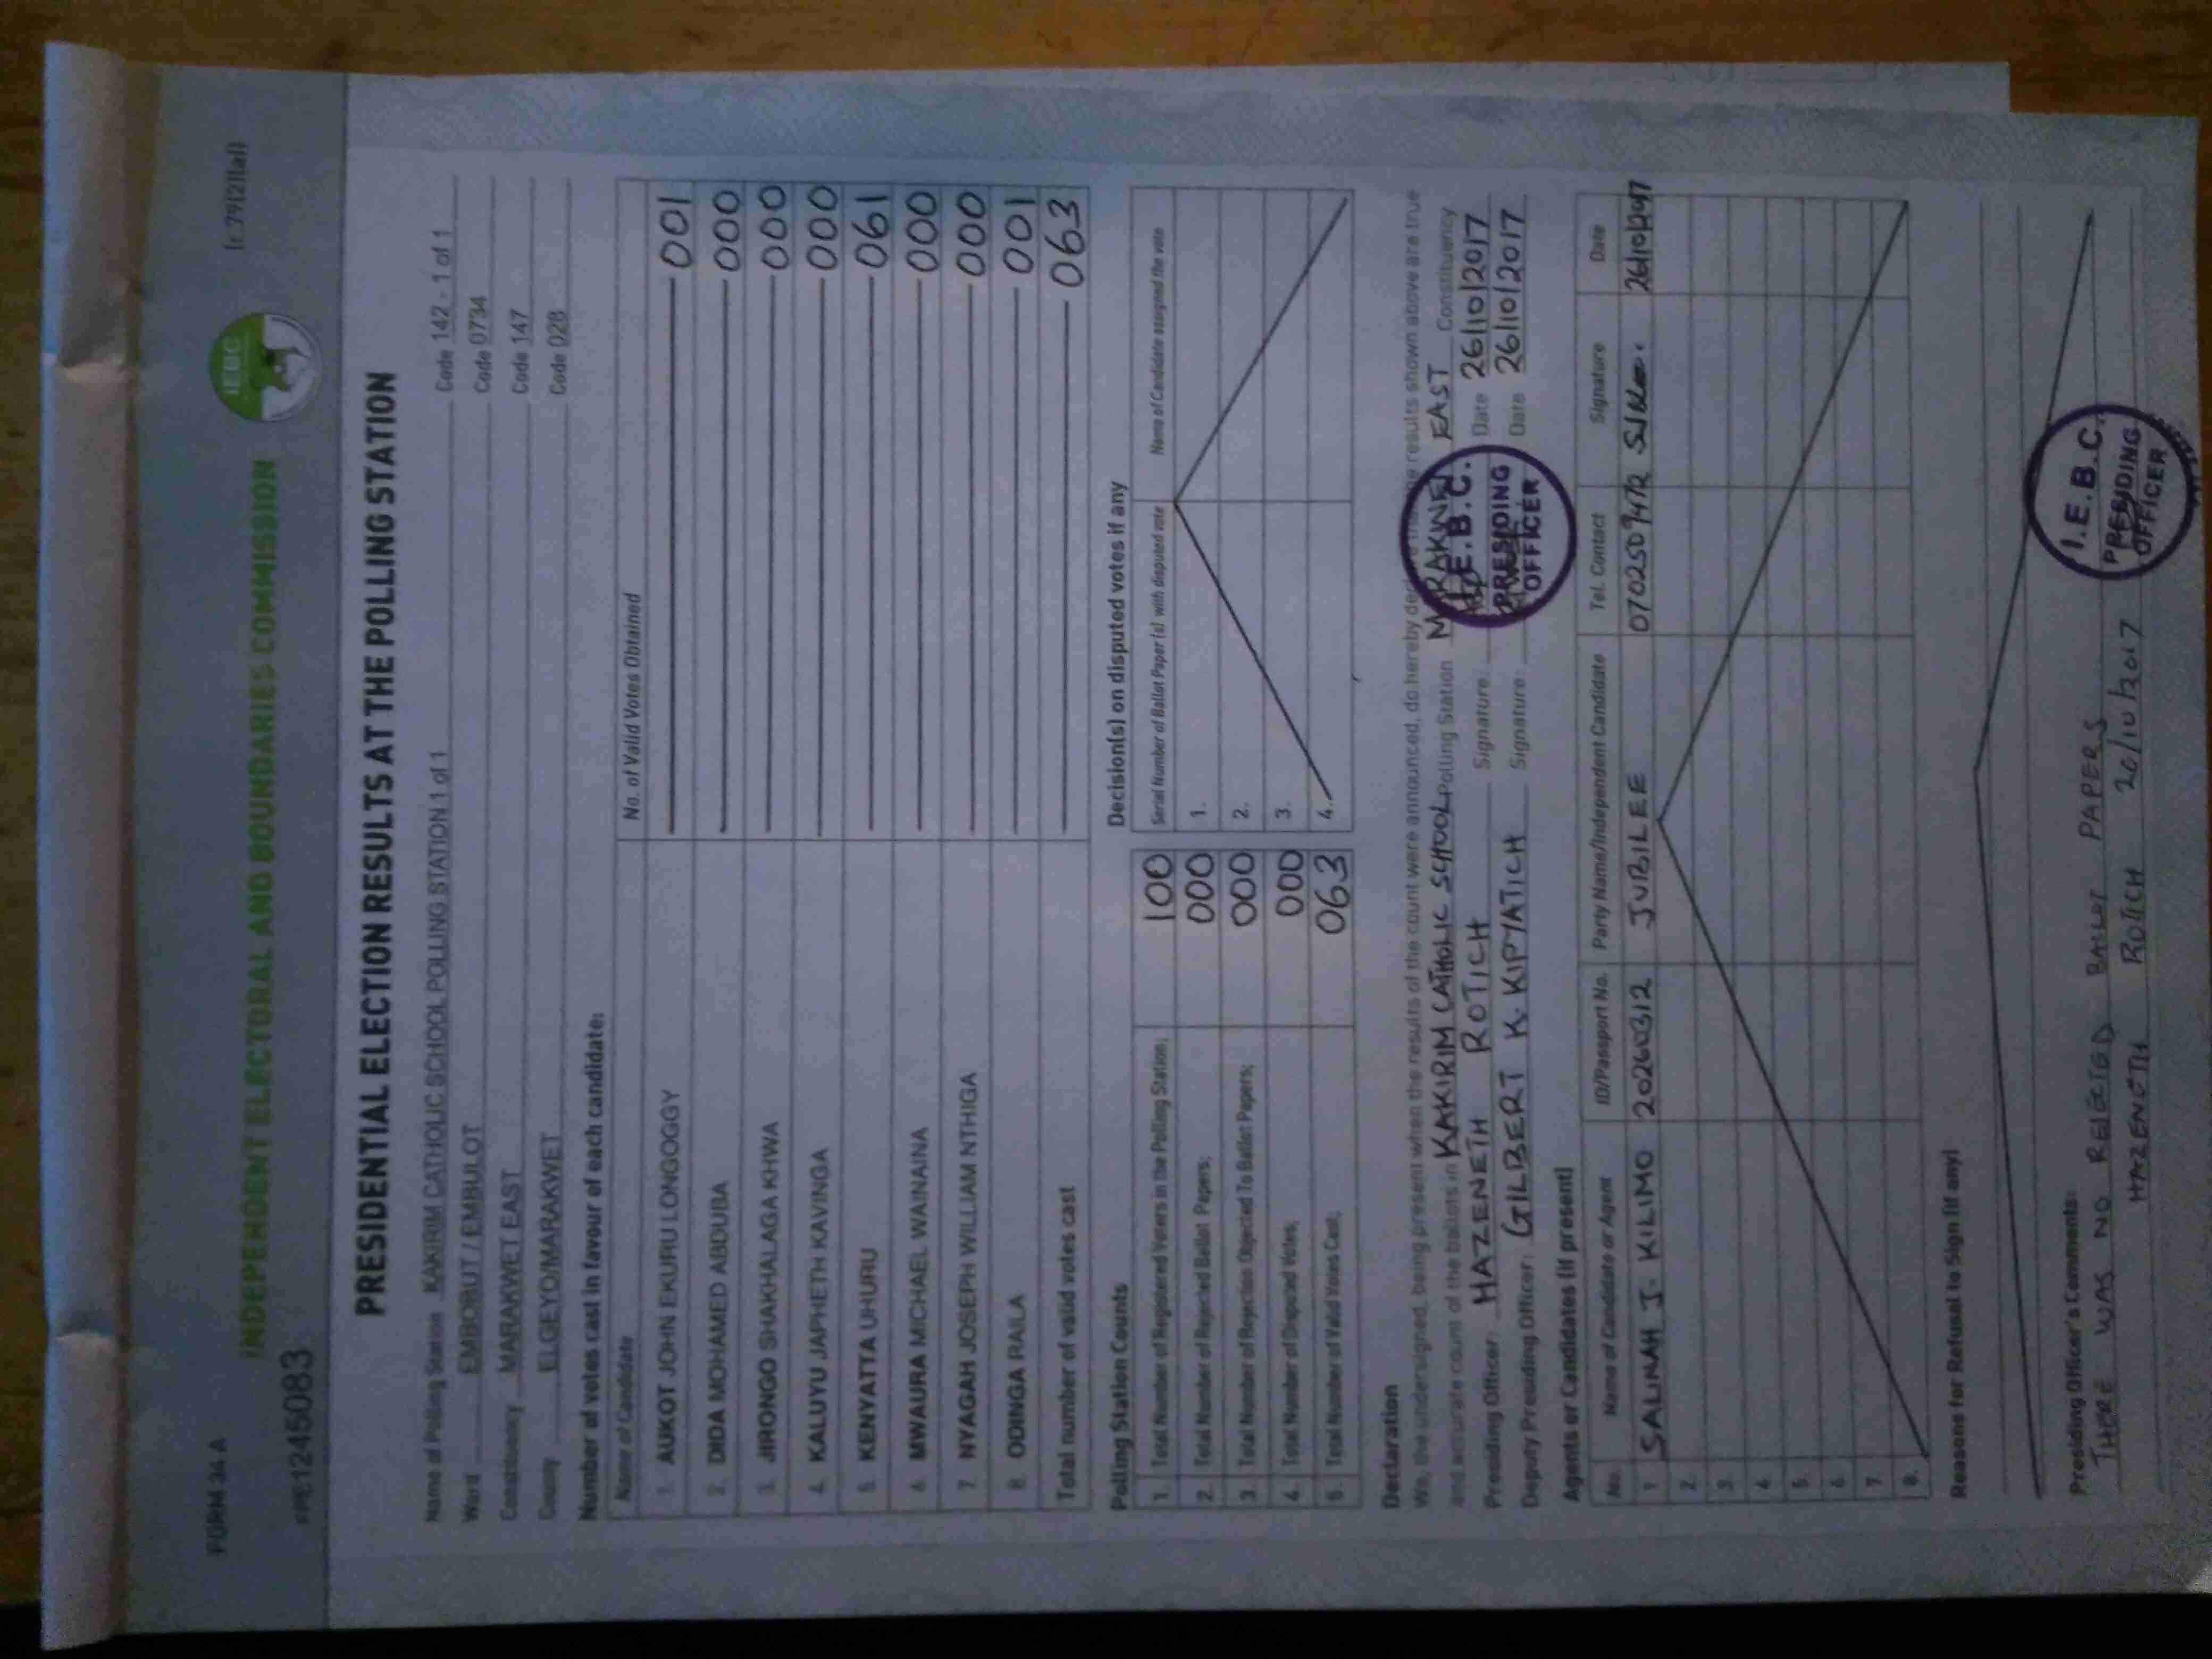 FORM 34 A (r.79(2)(a))
IEBC
INDEPENDENT ELECTORAL AND BOUNDARIES COMMISSION
#PE1245083
PRESIDENTIAL ELECTION RESULTS AT THE POLLING STATION
Name of Polling Station KAKIRIM CATHOLIC SCHOOL POLLING STATION 1 of 1 Code 142 - 1 of 1
Ward EMBOBUT / EMBULOT Code 0734
Constituency MARAKWET EAST Code 147
County ELGEYO/MARAKWET Code 028
Number of votes cast in favour of each candidate:
Name of Candidate No. of Valid Votes Obtained
1. AUKOT JOHN EKURU LONGOGGY 001
2. DIDA MOHAMED ABDUBA 000
3. JIRONGO SHAKHALAGA KHWA 000
4. KALUYU JAPHETH KAVINGA 000
5. KENYATTA UHURU 061
6. MWAURA MICHAEL WAINAINA 000
7. NYAGAH JOSEPH WILLIAM NTHIGA 000
8. ODINGA RAILA 001
Total number of valid votes cast 063
Polling Station Counts
1. Total Number of Registered Voters in the Polling Station; 100
2. Total Number of Rejected Ballot Papers; 000
3. Total Number of Rejection Objected To Ballot Papers; 000
4. Total Number of Disputed Votes; 000
5. Total Number of Valid Votes Cast; 063
Decision(s) on disputed votes if any
Serial Number of Ballot Paper (s) with disputed vote Name of Candidate assigned the vote
1.
2.
3.
4.
Declaration
We, the undersigned, being present when the results of the count were announced, do hereby declare results shown above are true
and accurate count of the ballots in KAKIRIM CATHOLIC SCHOOL Polling Station MARAKWET EAST Constituency
Presiding Officer: HAZENETH ROTICH Signature: Date 26/10/2017
Deputy Presiding Officer: GILBERT K. KIPYATICH Signature: Date 26/10/2017
I.E.B.C.
PRESIDING
OFFICER
Agents or Candidates (if present)
No. Name of Candidate or Agent ID/Passport No. Party Name/Independent Candidate Tel. Contact Signature Date
1 SALINAH J. KILIMO 20260312 JUBILEE 0702509472 26/10/2017
2.
3.
4.
5.
6.
7.
8.
Reasons for Refusal to Sign (if any)
Presiding Officer's Comments:
THERE WAS NO REJECTED BALLOT PAPERS
HAZENETH ROTICH 26/10/2017
I.E.B.C.
PRESIDING
OFFICER